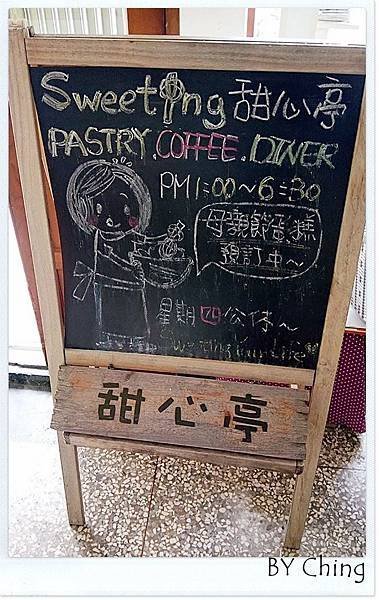 Sweeting 甜心亭
PASTRY.COFFEE.DINER
PM1:00~6:30
母親節蛋糕
預訂中~
星期四公休~
Sweeting Your Life
甜心亭
BY Ching